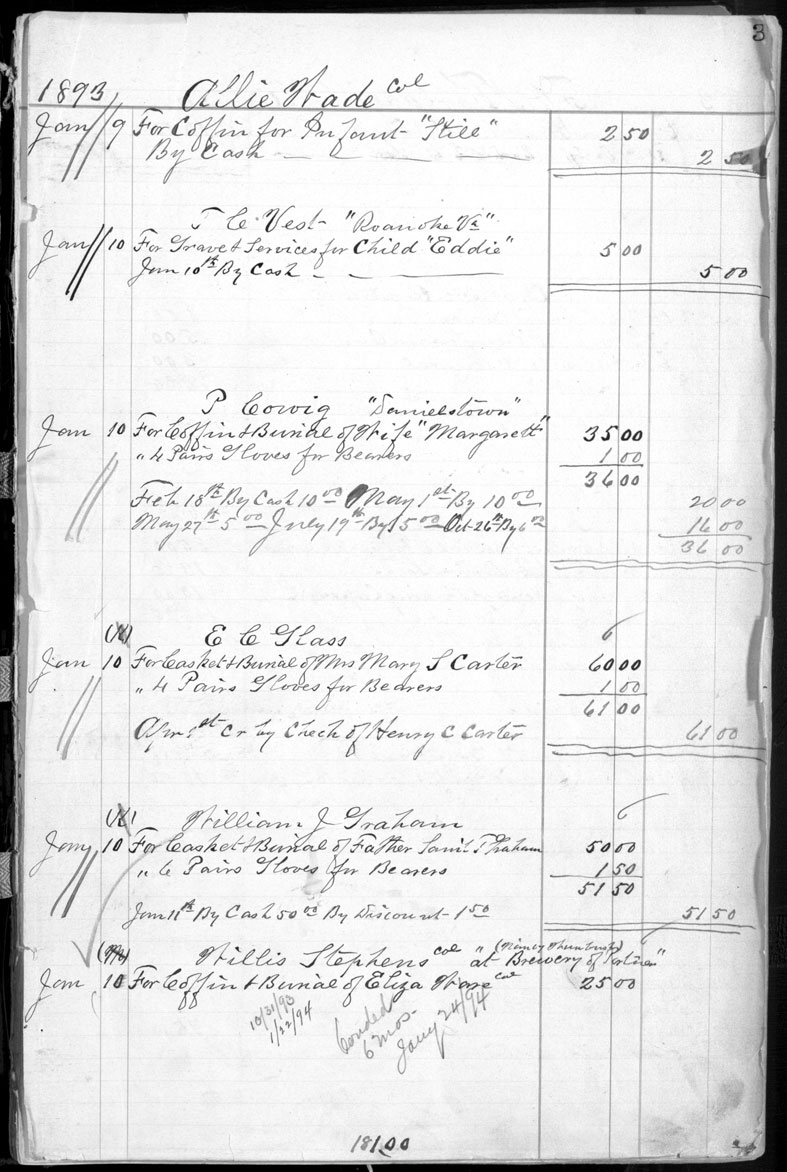 3
1893 Allie Wade col
Jan 9 For Coffin for Infant "Still" 2 50
By Cash 2 50
T C Vest "Roanoke Va"
Jan 10 For Grave & Services for Child "Eddie" 5 00
Jan 10th By Cash 5 00
P Cowig "Danielstown"
Jan 10 For Coffin & Burial of Wife "Margarett" 35 00
" 4 Pairs Gloves for Bearers 1 00
36 00
Feb 18th By Cash 10 00 May 1st By 10 00 20 00
May 27th 5 00 July 19th By 5 00 Oct 26th By 6 00 16 00
36 00
E C Glass
Jan 10 For Casket & Burial of Mrs Mary S Carter 60 00
" 4 Pairs Gloves for Bearers 1 00
61 00
Apr 1st Cr by Check of Henry C Carter 61 00
William J Graham
Jany 10 For Casket & Burial of Father Saml T Graham 50 00
" 6 Pairs Gloves for Bearers 1 50
51 50
Jan 11th By Cash 50 00 By Discount 1 50 51 50
Willis Stephens col "at Brewery of
Jan 10 For Coffin & Burial of Eliza Ware col 25 00
10/31/93
1/22/94
bonded
6 mos.
Jany 24/94
181.00